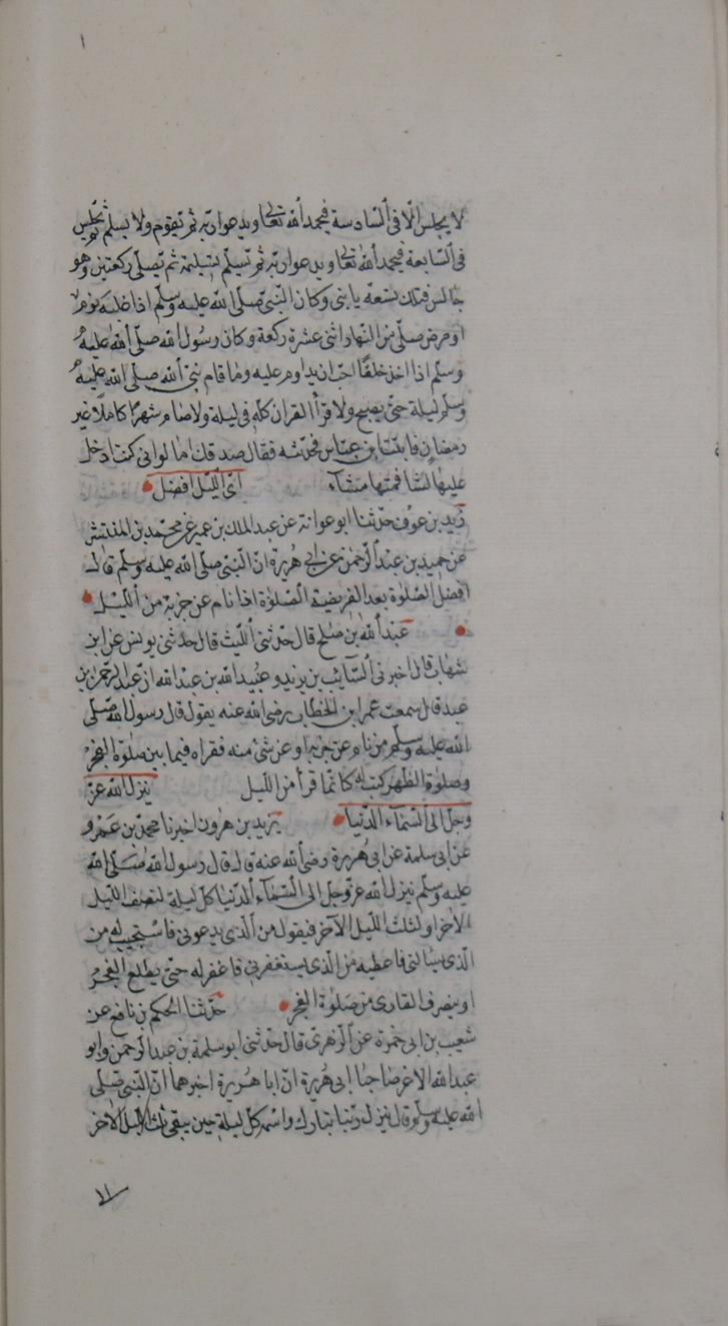 ١
لا يجلس الّا فى السّادسة فيحمد الله تعالى ويدعو ربّه ثم يقوم ولا يسلّم ثم يجلس
فى السّابعة فيحمد الله تعالى ويدعو ربّه ثم يسلّم تسليمة ثم يصلّى ركعتين وهو
جالس فتلك تسعة يا بنى وكان النّبى صلّى الله عليه وسلّم اذا غلبه نوم
او مرض صلّى من النّهار اثنى عشرة ركعة وكان رسول الله صلّى الله عليه
وسلّم اذا اخذ خلقًا احبّ ان يداوم عليه وما قام نبىّ الله صلى الله عليه
وسلم ليلة حتّى يصبح ولا قرأ القران كلّه فى ليلة ولا صام شهرًا كاملًا غير
رمضان فاتيت ابن عبّاس فحدّثته فقال صدقتك اما لو انى كنت ادخل
عليها لشافهتها مشافهة اىّ اللّيل افضل
زيد بن عوف حدّثنا ابو عوانة عن عبد الملك بن عمير عن محمّد بن المنتشر
عن حميد بن عبد الرّحمن عن ابى هريرة انّ النّبى صلّى الله عليه وسلّم قال
افضل الصّلوة بعد الفريضة الصّلوة اذا نام عن حزبه من اللّيل
عبد الله بن صالح قال حدّثنى اللّيث قال حدثنى يونس عن ابن
شهاب قال اخبرنى السّايب بن يزيد وعبيد الله بن عبد الله انّ عبد الرّحمن بن
عبد قال سمعت عمر ابن الخطاب رضى الله عنه يقول قال رسول الله صلّى
الله عليه وسلّم من نام عن حزبه او عن شئ منه فقراه فيما بين صلوة الفجر
وصلوة الظهر كتب له كانّما قرأ من اللّيل ينزل الله عزّ
وجلّ الى السّماء الدّنيا يزيد بن هرون اخبرنا محمّد بن عمرو
عن ابى سلمة عن ابى هريرة رضى الله عنه قال قال رسول الله صلّى الله
عليه وسلّم ينزل الله عزّ وجل الى السّماء الدّنيا كلّ ليلة لنصف اللّيل
الآخر او لثلث اللّيل الآخر فيقول من الّذى يدعونى فاستجيب له من
الّذى يسألنى فاعطيه من الّذى يستغفرنى فاغفر له حتّى يطلع الفجر
او ينصرف القارى من صلوة الفجر حدّثنا الحكم بن نافع عن
شعيب بن ابى حمزة عن الزهرى قال حدّثنى ابو سلمة بن عبد الرحمن وابو
عبد الله الاغر صاحبا ابى هريرة انّ ابا هريرة اخبرهما انّ النّبى صلى
الله عليه وسلّم قال ينزل ربّنا تبارك واسمه كلّ ليلة حين يبقى ثلث اللّيل الآخر